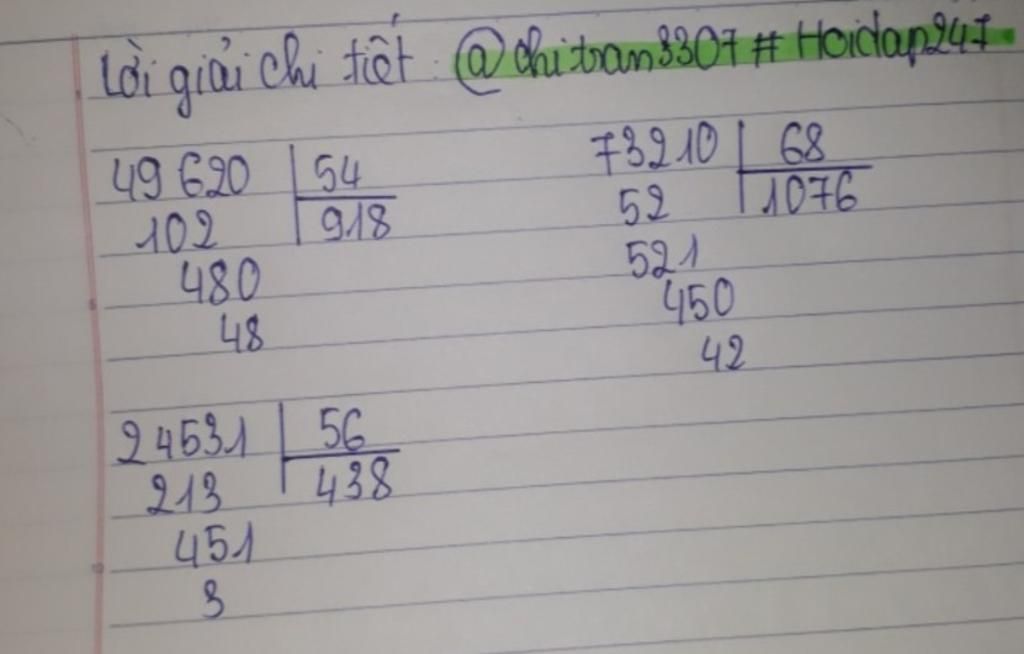 Lời giải chi tiết: @chitran3307#Hoidap247
49620 54
102 918
480
48
73210 68
52 1076
521
450
42
24531 56
213 438
451
3